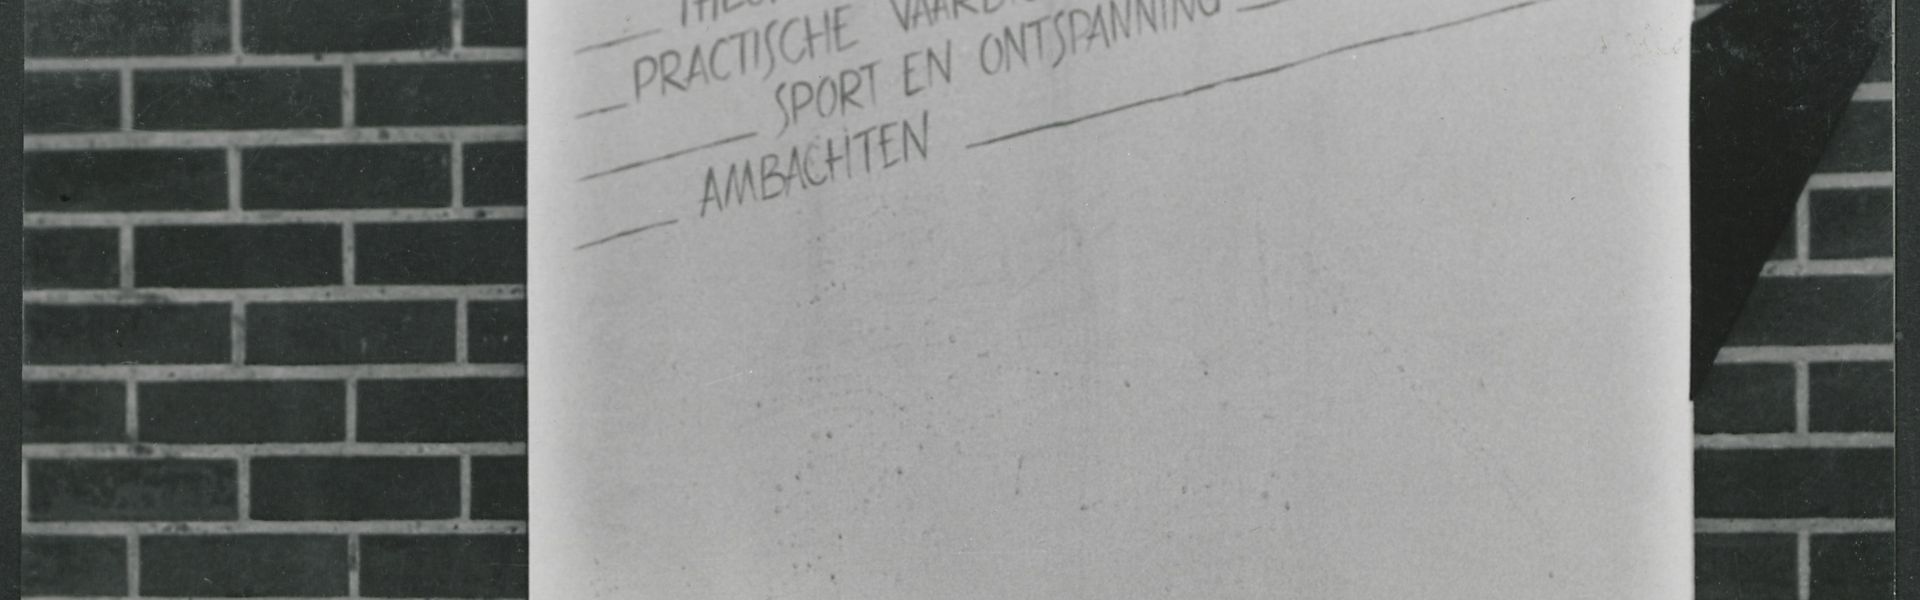 PRACTISCHE
SPORT EN ONTSPANNING
AMBACHTEN